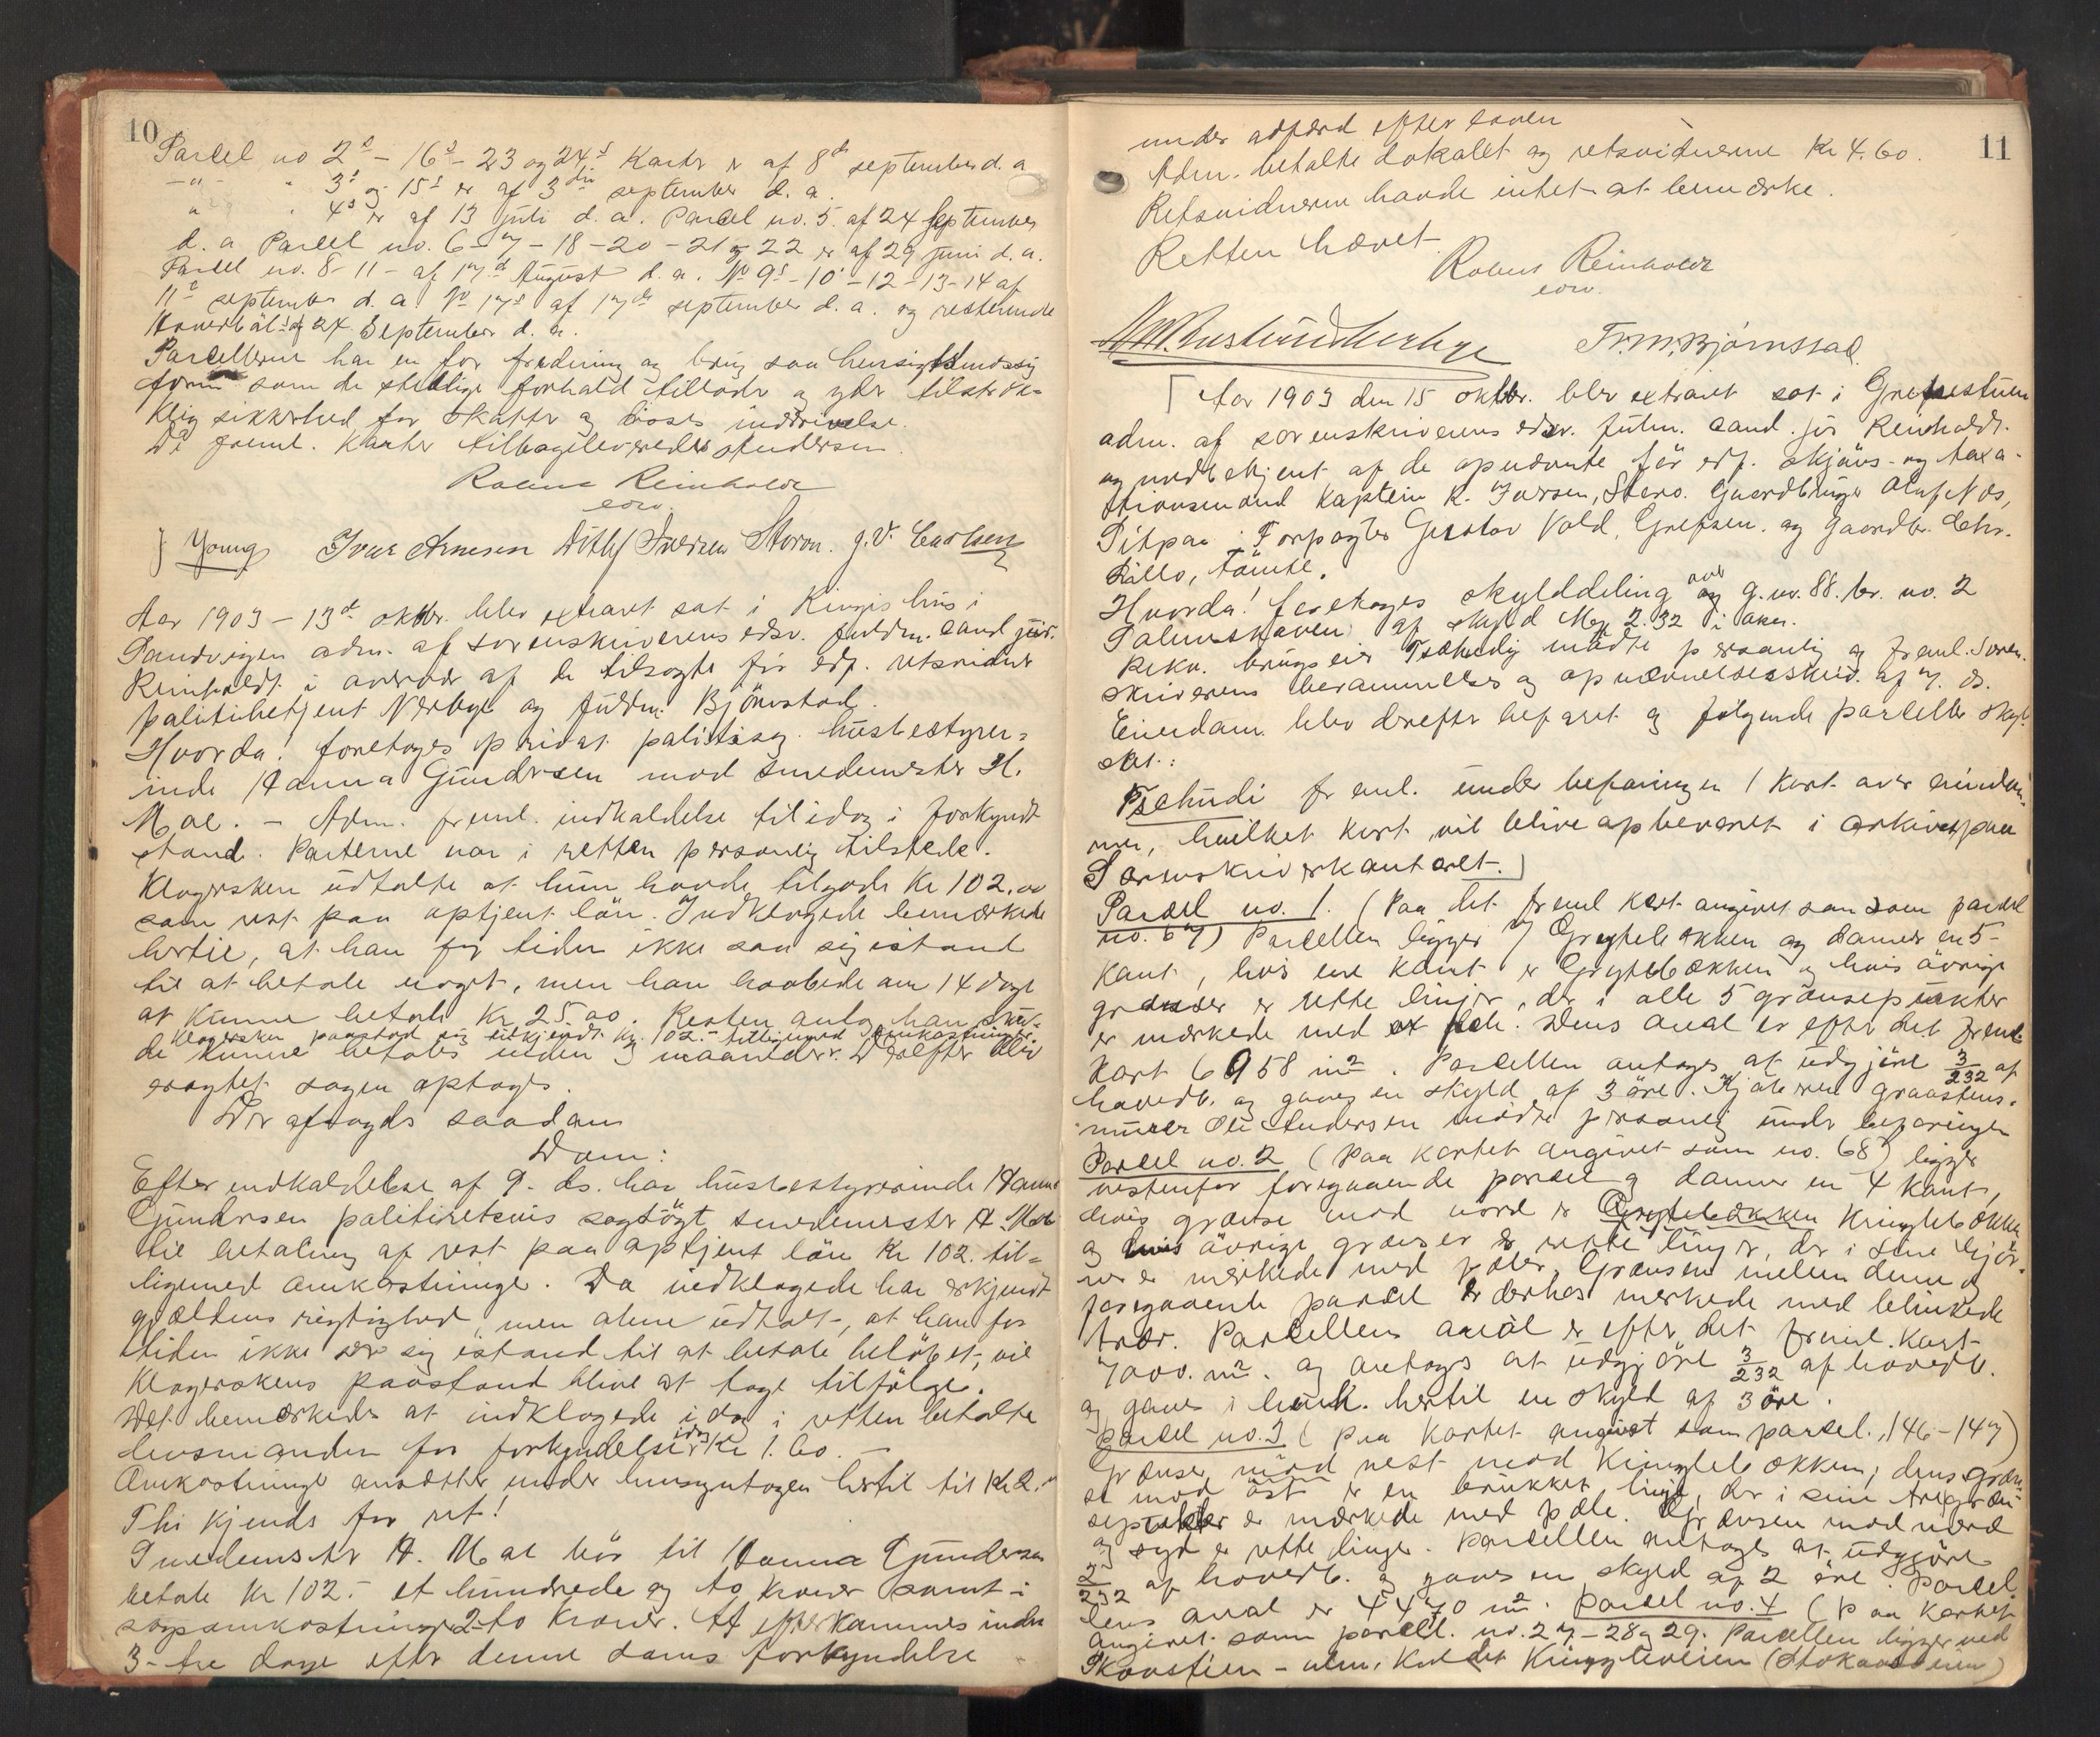 10
Parcel no 2s - 16s - 23 og 24s Karter er af 8de september d. a
-"- " 3s og 15s er af 3die september d. a.
" " 4s er af 13 juli d. a. Parcel no. 5. af 24 September
d. a Parcel no. 6 - 7 - 18 - 20 - 21 og 22 er af 29 juni d. a.
Parcel no. 8 - 11 - af 17d August d. a. No 9s - 10s - 12 - 13 - 14 af
11te september d. a. No 17s af 17de september d. a. og resterende
Hovedböl af 24 September d. a.
Parcellerne har en for fredning og brug saa hensigtsmæssig
form som de stedlige forhold tillader og yder tilstræk-
kelig sikkerhed for skatters og inddrivelse.
De freml. Karter tilbageleveredes Andersen.
Robert Reinholdt
edsv.
Young Ivar Arnesen Ditlef Iversen Storøn. J. V. Carlsen
Aar 1903 - 13d oktbr. blev extraret sat i Ringis hus i
Sandvigen adm. af sorenskriverens edsv. fuldm. cand jur.
Reinholdt i overvær af de tilsagte før edf. retsvidner
politibetjent Nerbye og fuldm. Björnstad.
Hvorda! foretoges privat politisag husbestyrer-
inde Hanna Gundersen mod smedemester H.
Moe. - Adm. freml. indkaldelse til idag i forkyndt
stand. Parterne var i retten personlig tilstede.
Klagersken udtalte at hun havde tilgode Kr 102.00
som rest paa optjent lön. Indklagede bemærkede
hertil, at han for tiden ikke saa sig istand
til at betale noget, men han haabede om 14 dage
at kunne betale Kr 25.00. Resten antog han skul-
Klagersken paastod sig tilkjendt Kr. 102.- tilligemed omkostninger.
de kunne betales inden 3 maaneder. Derefter blev
eragtet sagen optages.
Der afsagdes saadan
Dom:
Efter indkaldelse af 9. ds. har husbestyrerinde Hanna
Gundersen politiretsvis sagsögt smedemester H. Moe
til betaling af rest paa optjent lön Kr 102. til-
ligemed omkostninger. Da indklagede har erkjendt
gjældens rigtighed, men alene udtalt, at han for
tiden ikke ser sig istand til at betale belöbet, vil
Klagerskens paastand blive at tage tilfölge.
Det bemærkedes at indklagede idag i retten betalte
lensmanden for forkyndelse idag Kr 1.60. -
Omkostninger ansættes under hensyntagen hertil til Kr 2.
Thi kjendes for ret!
Smedemester H. Moe bör til Hanna Gundersen
betale Kr 102.- et hundrede og to kroner samt i
sagsomkostninger 2 to kroner. At efterkommes inden
3 - tre dage efter denne doms forkyndelse
11
under adfærd efter loven
Adm. betalte lokalet og retsvidnerne Kr 4.60.
Retsvidnerne havde intet at bemærke.
Retten hævet
Robert Reinholdt
edsv.
Fr. M. Bjørnstad
Aar 1903 den 15 oktbr. blev extraret sat i Grefsestuen
adm. af sorenskriverens edsv. fulm. cand. jur Reinholdt.
og medbetjent af de opnævnte før edf. skjöns- og taxa-
tionsmænd kaptein K. Iversen, Steno. Gaardbruger Olaf Nøs,
Sitpaa. Forpagter Gustav Vold, Grefsen. og gaardbr. Chr.
Lillo, Tömte.
Hvorda! foretoges skylddeling over g. no. 88. br. no. 2
Solemskoven af skyld Mrk 2.32 i Aker.
Rekv. brugseier Tschudy mødte personlig og freml. soren-
skriverens berammelses og opnævnelsesskriv. af 7. ds.
Eiendom. blev derefter befaret og følgende parceller skyl.
sat.:
Tschudi freml. under befaringen 1 Kart over eiendom-
men, hvilket kart vil blive opbevaret i arkivet paa
Sorenskriverkontoret.
Parcel no. 1. (Paa det freml kart angivet som parcel
no. 67) Parcellen ligger i Grytebækken og danner en 5-
kant, hvis ene kant er Grytebækken og hvis øvrige
grænser er rette linjer, der i alle 5 grænsepunkter
er mærkede med pæle. Dens areal er efter det freml
kart 6958 m2. Parcellen antages at udgjøre 3/232 af
hovedb. og gaves en skyld af 3 öre. Kjøberen graastens-
murer Ole Andersen mødte personlig under befaringen
Parcel no. 2 (paa kartet angivet som no. 68) ligger
vestenfor foregaaende parcel og danner en 4 kant,
hvis grænse mod nord er Grytebækken Kringlebækken
og hvis övrige grænser er rette linjer, der i sine hjör-
ner er mærkede med pæler. Grænsen mellem denne og
foregaaende parcel er derhos merkede med blinkede
trær. Parcellens areal er efter det freml. kart
7000. m2. og antages at udgjøre 3/232 af hovedb.
og gaves i henh. hertil en skyld af 3 öre.
Parcel no. 3 (Paa kartet angivet som parcel. 146 - 147)
Grænser, mod vest mod Kringlebækken, dens græn-
se mod öst er en brukket linje, der i sine tre græn-
sepunkter er mærkede med pæle. Grænsen mod nord
og syd er rette linjer. Parcellen antages at udgjøre
2/232 af hovedb. og gaves en skyld af 2 öre. Parcel
lens areal er 4470 m2. Parcel no. 4 (Paa kartet
angivet som parcel. no. 27 - 28 og 29. Parcellen ligger ved
Skovstien - alm. kaldet Kringleveien (Stokaaveien)